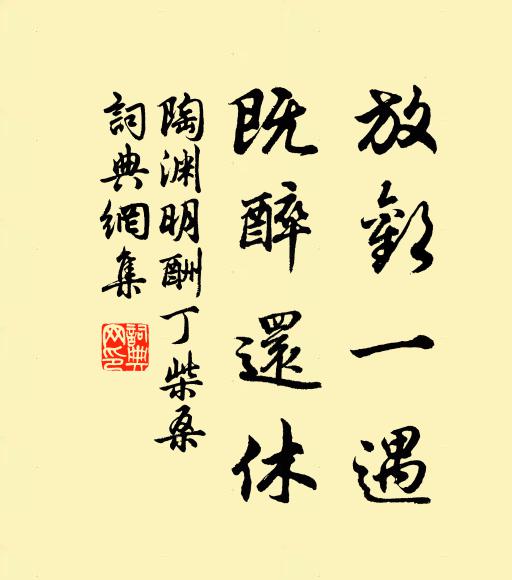 放歡一遇
既醉還休
陶渊明酬丁柴桑
詞典網集
詞典
网印